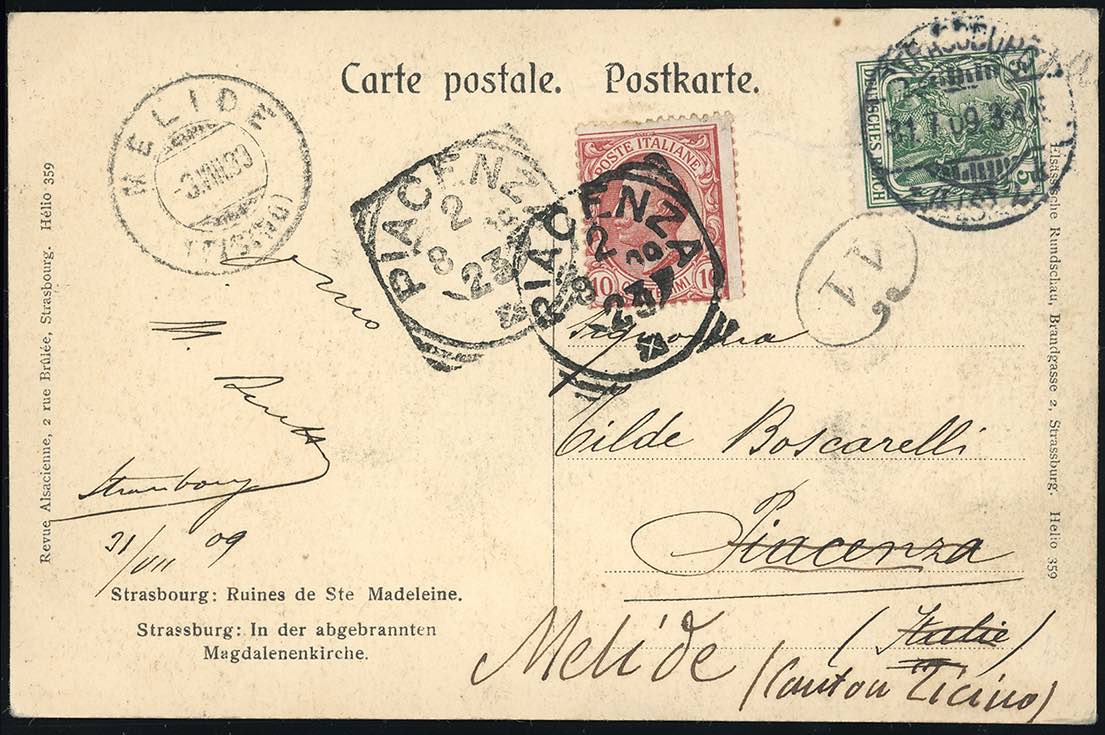 Carte postale. Postkarte.
MELIDE
(TICINO)
PIACENZA
2 8
23
POSTE ITALIANE
10 CENTESIMI 10
PIACENZA
2 8 09
23
DEUTSCHES REICH
5
STRASSBURG
31.7.09
Revue Alsacienne, 2 rue Brûlée, Strasbourg. Hélio 359
Elsässische Rundschau, Brandgasse 2, Strassburg. Helio 359
Strasbourg
31/VII 09
Signorina
Tilde Boscarelli
Piacenza
(Italie)
Melide (Canton Ticino)
Strasbourg: Ruines de Ste Madeleine.
Strassburg: In der abgebrannten
Magdalenenkirche.